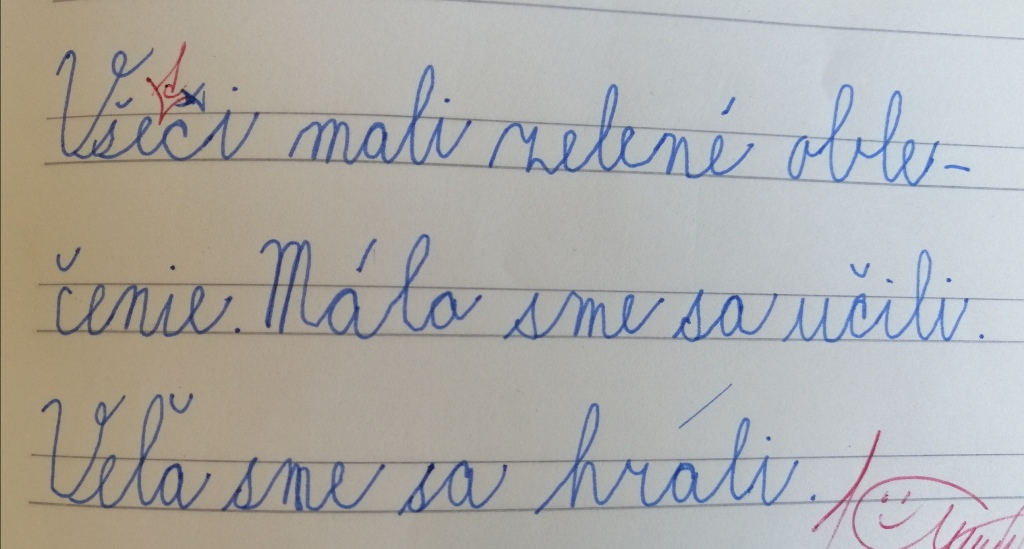 Všeci mali zelené oble-
čenie. Mála sme sa učili.
Veľa sme sa hráli.
1